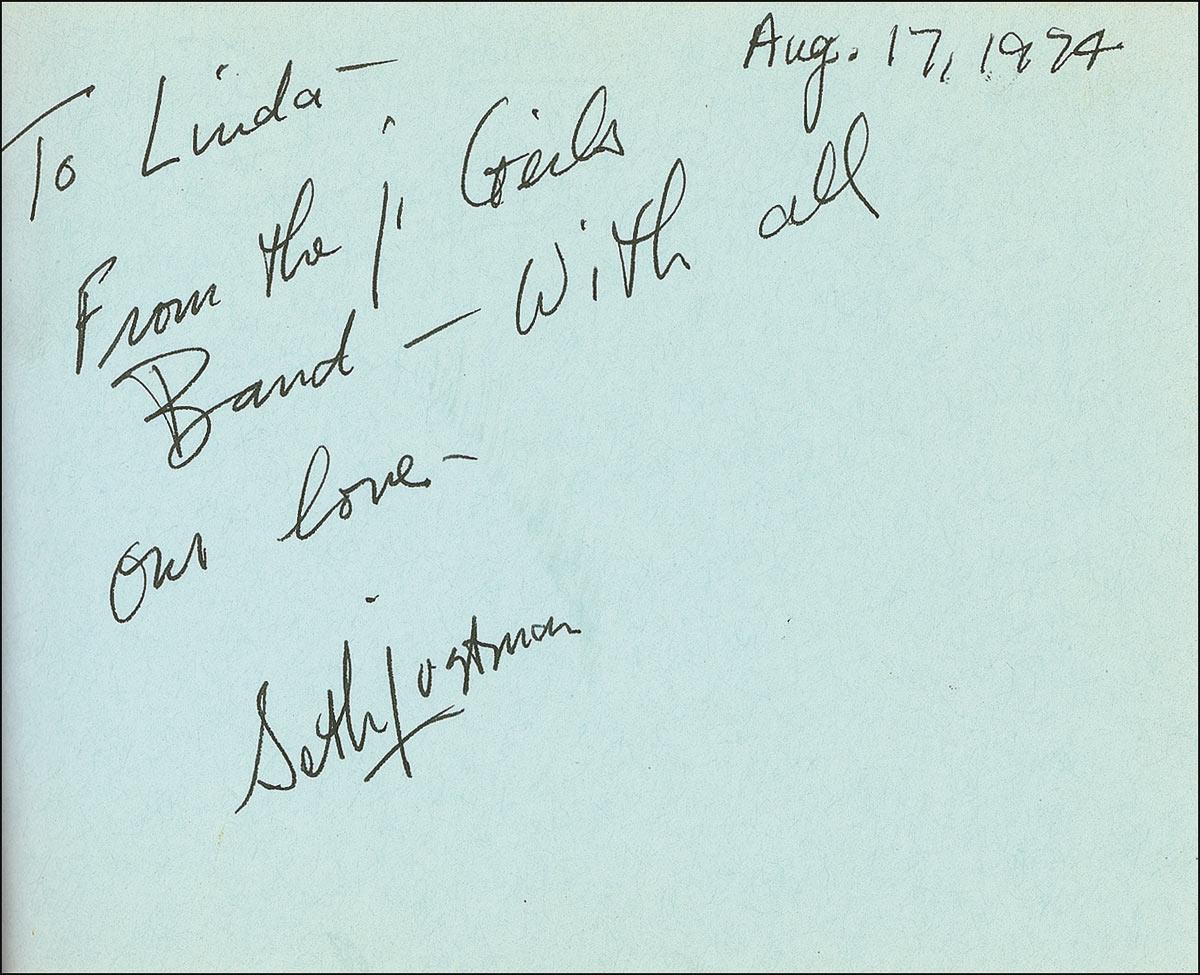 Aug. 17, 1974
To Linda —
From the j. Geils
Band — With all
our love —
Seth Justman